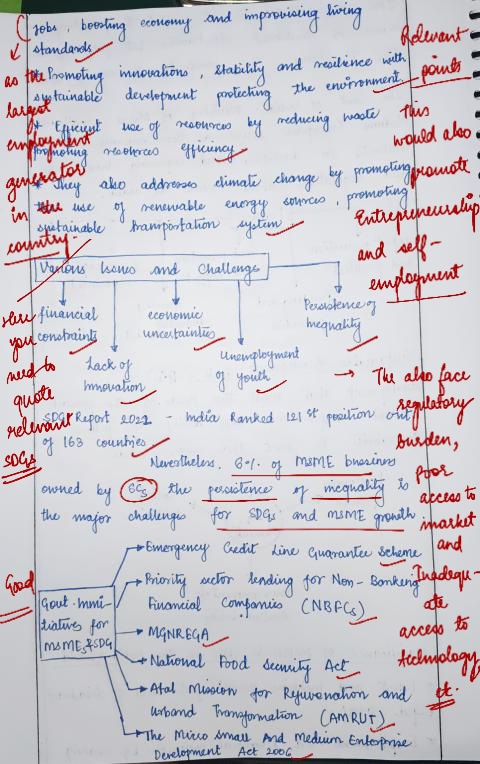 jobs, boosting economy and improvising living
standards
* Promoting innovations, stability and resilience with
sustainable development protecting the environment.
* Efficient use of resources by reducing waste
promoting resources efficiency
* They also addresses climate change by promoting
the use of renewable energy sources, promoting
sustainable transportation system.
as the
largest
employment
generator
in the
country.
Relevant
points
This
would also
promote
Entrepreneurship
and self-
employment
Various Issues and Challengs
financial
constraints
Lack of
Innovation
economic
uncertainties
Unemployment
of youth
Persistence of
Inequality
Here
you
need to
quote
relevant
SDGs
→ The also face
regulatory
burden,
Poor
access to
market
and
Inadequ-
ate
access to
technology
etc.
SDG Report 2022 - India Ranked 121st position out
of 163 countries
Nevertheless, 6% of MSME business
owned by SCs the persistence of inequality is
the major challenges for SDGs and MSME growth
Good
Govt. Inni-
tiatives for
MSMEs & SDG
Emergency Credit Line Guarantee Scheme
Priority sector lending for Non-Banking
Financial Companies (NBFCs)
MGNREGA
National Food Security Act
Atal Mission for Rejuvenation and
Urband Transformation (AMRUT)
The Micro Small And Medium Enterprise
Development Act 2006